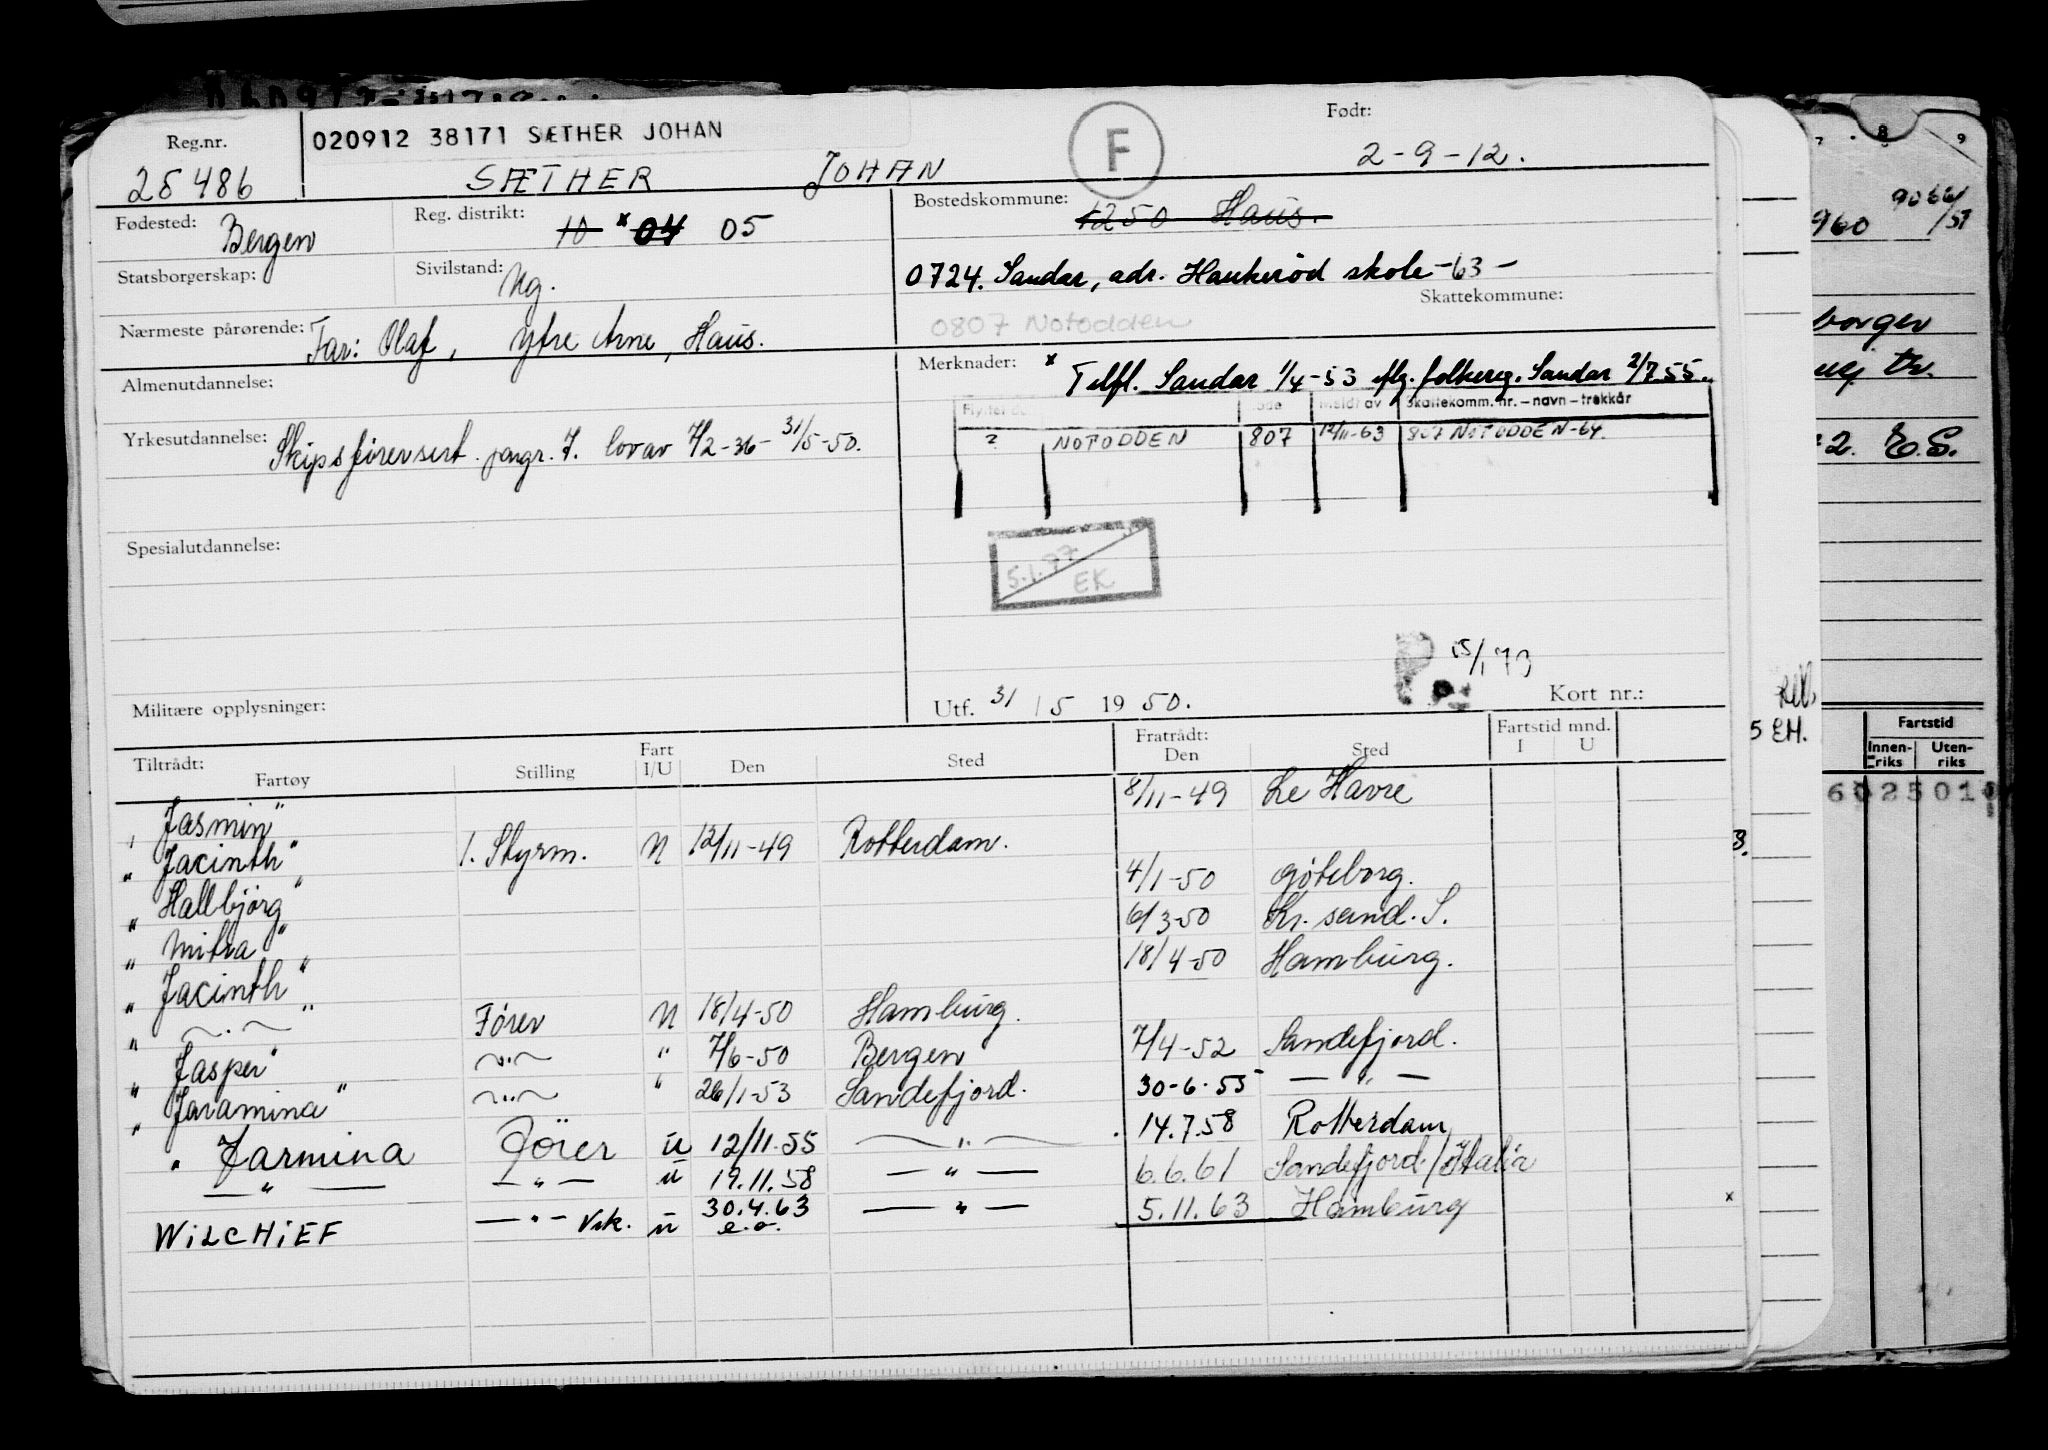 Reg.nr.
25486
020912 38171 SÆTHER JOHAN
SÆTHER JOHAN
F
Født:
2-9-12.
Fødested: Bergen
Reg. distrikt: 10 x 04 05
Bostedskommune: 1250 Haus.
Statsborgerskap:
Sivilstand: Ug.
0724. Sandar, adr. Haukerød skole -63-
Skattekommune:
0807 Notodden
Nærmeste pårørende: Far: Olaf, Ytre Arne, Haus.
Merknader: x Tilfl. Sandar 1/4-53 flg. folkereg. Sandar 2/7.55.
Almenutdannelse:
Meldt av Skattekomm. nr. – navn – trekkår
2 NOTODDEN 807 12/11-63 807 NOTODDEN-64.
Yrkesutdannelse: Skipsførersert. pargr. 7. lov av 7/2-36 - 31/5-50.
Spesialutdannelse:
5.1.77
EK
15/1 73
Militære opplysninger:
Utf. 31/5 1950.
Kort nr.:
Tiltrådt:
Fartøy Stilling Fart I/U Den Sted
Fratrådt:
Den Sted
Fartstid mnd.
I U
" Jasmin" 8/11-49 Le Havre
" Jacinth" 1. Styrm. N 12/11-49 Rotterdam.
" Hallbjørg" 4/1-50 Gøteborg.
" Mitra" 6/3-50 Kr. sand. S.
" Jacinth" 18/4-50 Hamburg.
" —.— " Fører N 18/4-50 Hamburg.
" Jasper" —"— " 7/6-50 Bergen 7/4-52 Sandefjord.
" Jaramina" —"— " 26/1-53 Sandefjord. 30-6-55 — " —
" Jarmina Fører U 12/11.55 — " — 14.7.58 Rotterdam
— " — — " — U 19.11.58 — " — 6.6.61 Sandefjord/Italia
WILCHIEF — " — Vik. U 30.4.63 — " — 5.11.63 Hamburg
e.o.
x
7 8 9
960
9066/
/57
borger
2. E.S.
5 EH.
Fartstid
Innen-
riks
Uten-
riks
6025010
3.